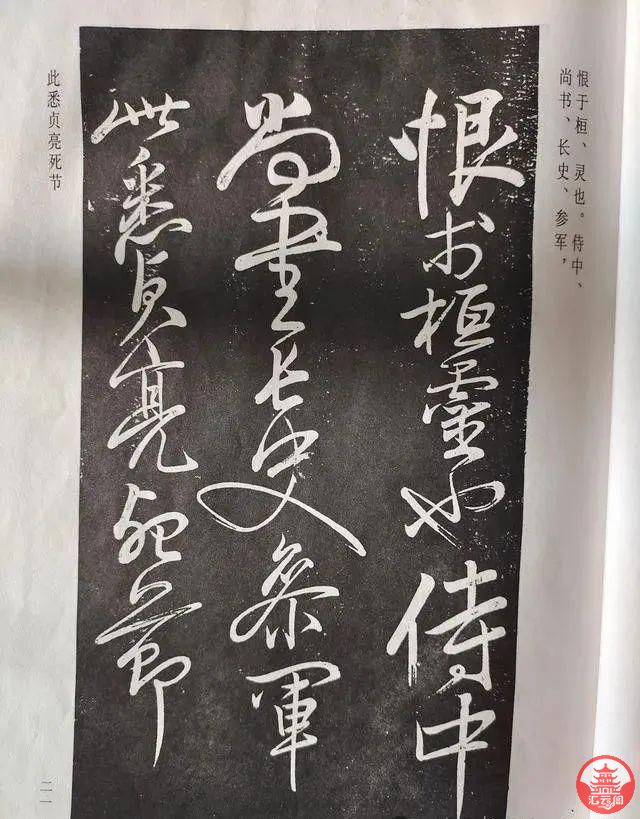 恨于桓、灵也。侍中、
尚书、长史、参军，
恨於桓靈也侍中
尚書長史參軍
此悉貞亮死節
此悉贞亮死节
二一
汇云阁